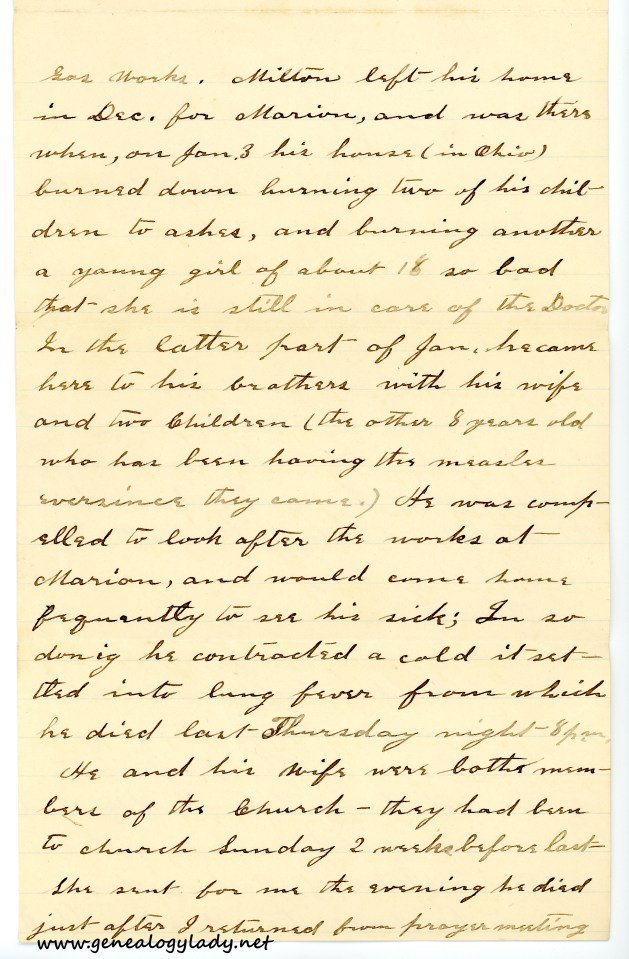 Gas Works. Milton left his home
in Dec. for Marion, and was there
when, on Jan. 3 his house (in Ohio)
burned down burning two of his chil-
dren to ashes, and burning another
a young girl of about 18 so bad
that she is still in care of the Doctor
In the latter part of Jan. he came
here to his brothers with his wife
and two Children (the other 8 years old
who has been having the measles
eversince they came.) He was comp-
elled to look after the works at
Marion, and would come home
fequently to see his sick; In so
donig he contracted a cold it set-
tled into lung fever from which
he died last Thursday night 8 p.m.
He and his wife were bothe mem-
bers of the Church - they had been
to church Sunday 2 weeks before last-
She sent for me the evening he died
just after I returned from prayer meeting
www.genealogylady.net